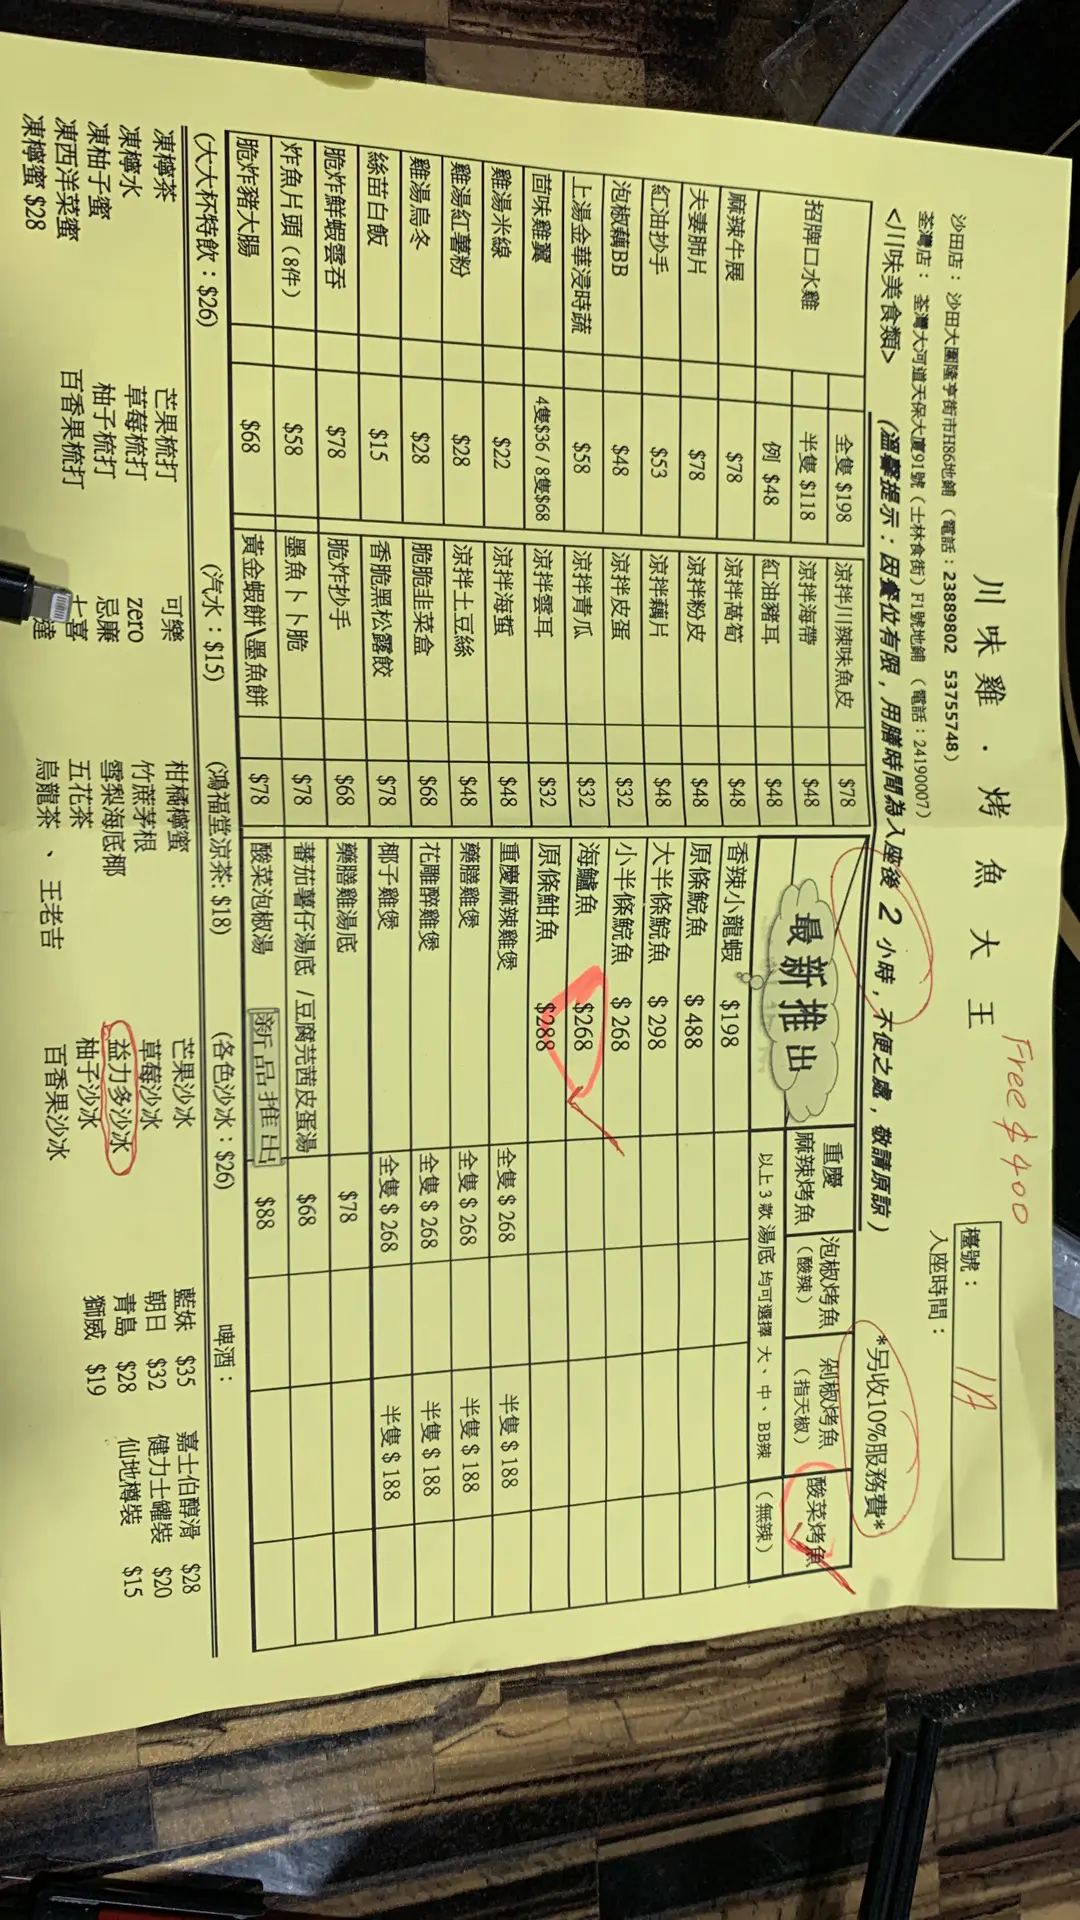 川味雞．烤魚大王
Free $400
沙田店： 沙田大圍隆亨街市H86地鋪（電話：23889802 53755748）
荃灣店： 荃灣大河道天保大廈91號（士林食街）F1號地鋪（電話：24190007）
檯號： 1A
入座時間：
<川味美食類> (溫馨提示：因餐位有限，用膳時間為入座後 2 小時，不便之處，敬請原諒)
*另收10%服務費*
招牌口水雞 全隻 $198
半隻 $118
例 $48
麻辣牛展 $78
夫妻肺片 $78
紅油抄手 $53
泡椒藕BB $48
上湯金華浸時蔬 $58
茴味雞翼 4隻$36 / 8隻$68
雞湯米線 $22
雞湯紅薯粉 $28
雞湯烏冬 $28
絲苗白飯 $15
脆炸鮮蝦雲吞 $78
炸魚片頭（8件） $58
脆炸豬大腸 $68
涼拌川辣味魚皮 $78
涼拌海帶 $48
紅油豬耳 $48
涼拌萵筍 $48
涼拌粉皮 $48
涼拌藕片 $48
涼拌皮蛋 $32
涼拌青瓜 $32
涼拌雲耳 $32
涼拌海蜇 $48
涼拌土豆絲 $48
脆脆韭菜盒 $68
香脆黑松露餃 $78
脆炸抄手 $68
墨魚卜卜脆 $78
黃金蝦餅\墨魚餅 $78
最新推出
重慶
麻辣烤魚
泡椒烤魚
（酸辣）
剁椒烤魚
（指天椒）
酸菜烤魚
（無辣）
以上 3 款 湯底 均可選擇 大、中、BB辣
香辣小龍蝦 $198
原條鯇魚 $ 488
大半條鯇魚 $ 298
小半條鯇魚 $ 268
海鱸魚 $268
原條鮒魚 $288
重慶麻辣雞煲 全隻 $ 268 半隻 $ 188
藥膳雞煲 全隻 $ 268 半隻 $ 188
花雕醉雞煲 全隻 $ 268 半隻 $ 188
椰子雞煲 全隻 $ 268 半隻 $ 188
藥膳雞湯底 $78
蕃茄薯仔湯底 /豆腐芫茜皮蛋湯 $68
酸菜泡椒湯 新品推出 $88
(大大杯特飲：$26)
凍檸茶 芒果梳打
凍檸水 草莓梳打
凍柚子蜜 柚子梳打
凍西洋菜蜜 百香果梳打
凍檸蜜 $28
(汽水：$15)
可樂
zero
忌廉
七喜
達
(鴻福堂涼茶: $18)
柑橘檸蜜
竹蔗茅根
雪梨海底椰
五花茶
烏龍茶 、 王老吉
(各色沙冰：$26)
芒果沙冰
草莓沙冰
益力多沙冰
柚子沙冰
百香果沙冰
啤酒：
藍妹 $35 嘉士伯醇滑 $28
朝日 $32 健力士罐裝 $20
青島 $28 仙地樽裝 $15
獅威 $19